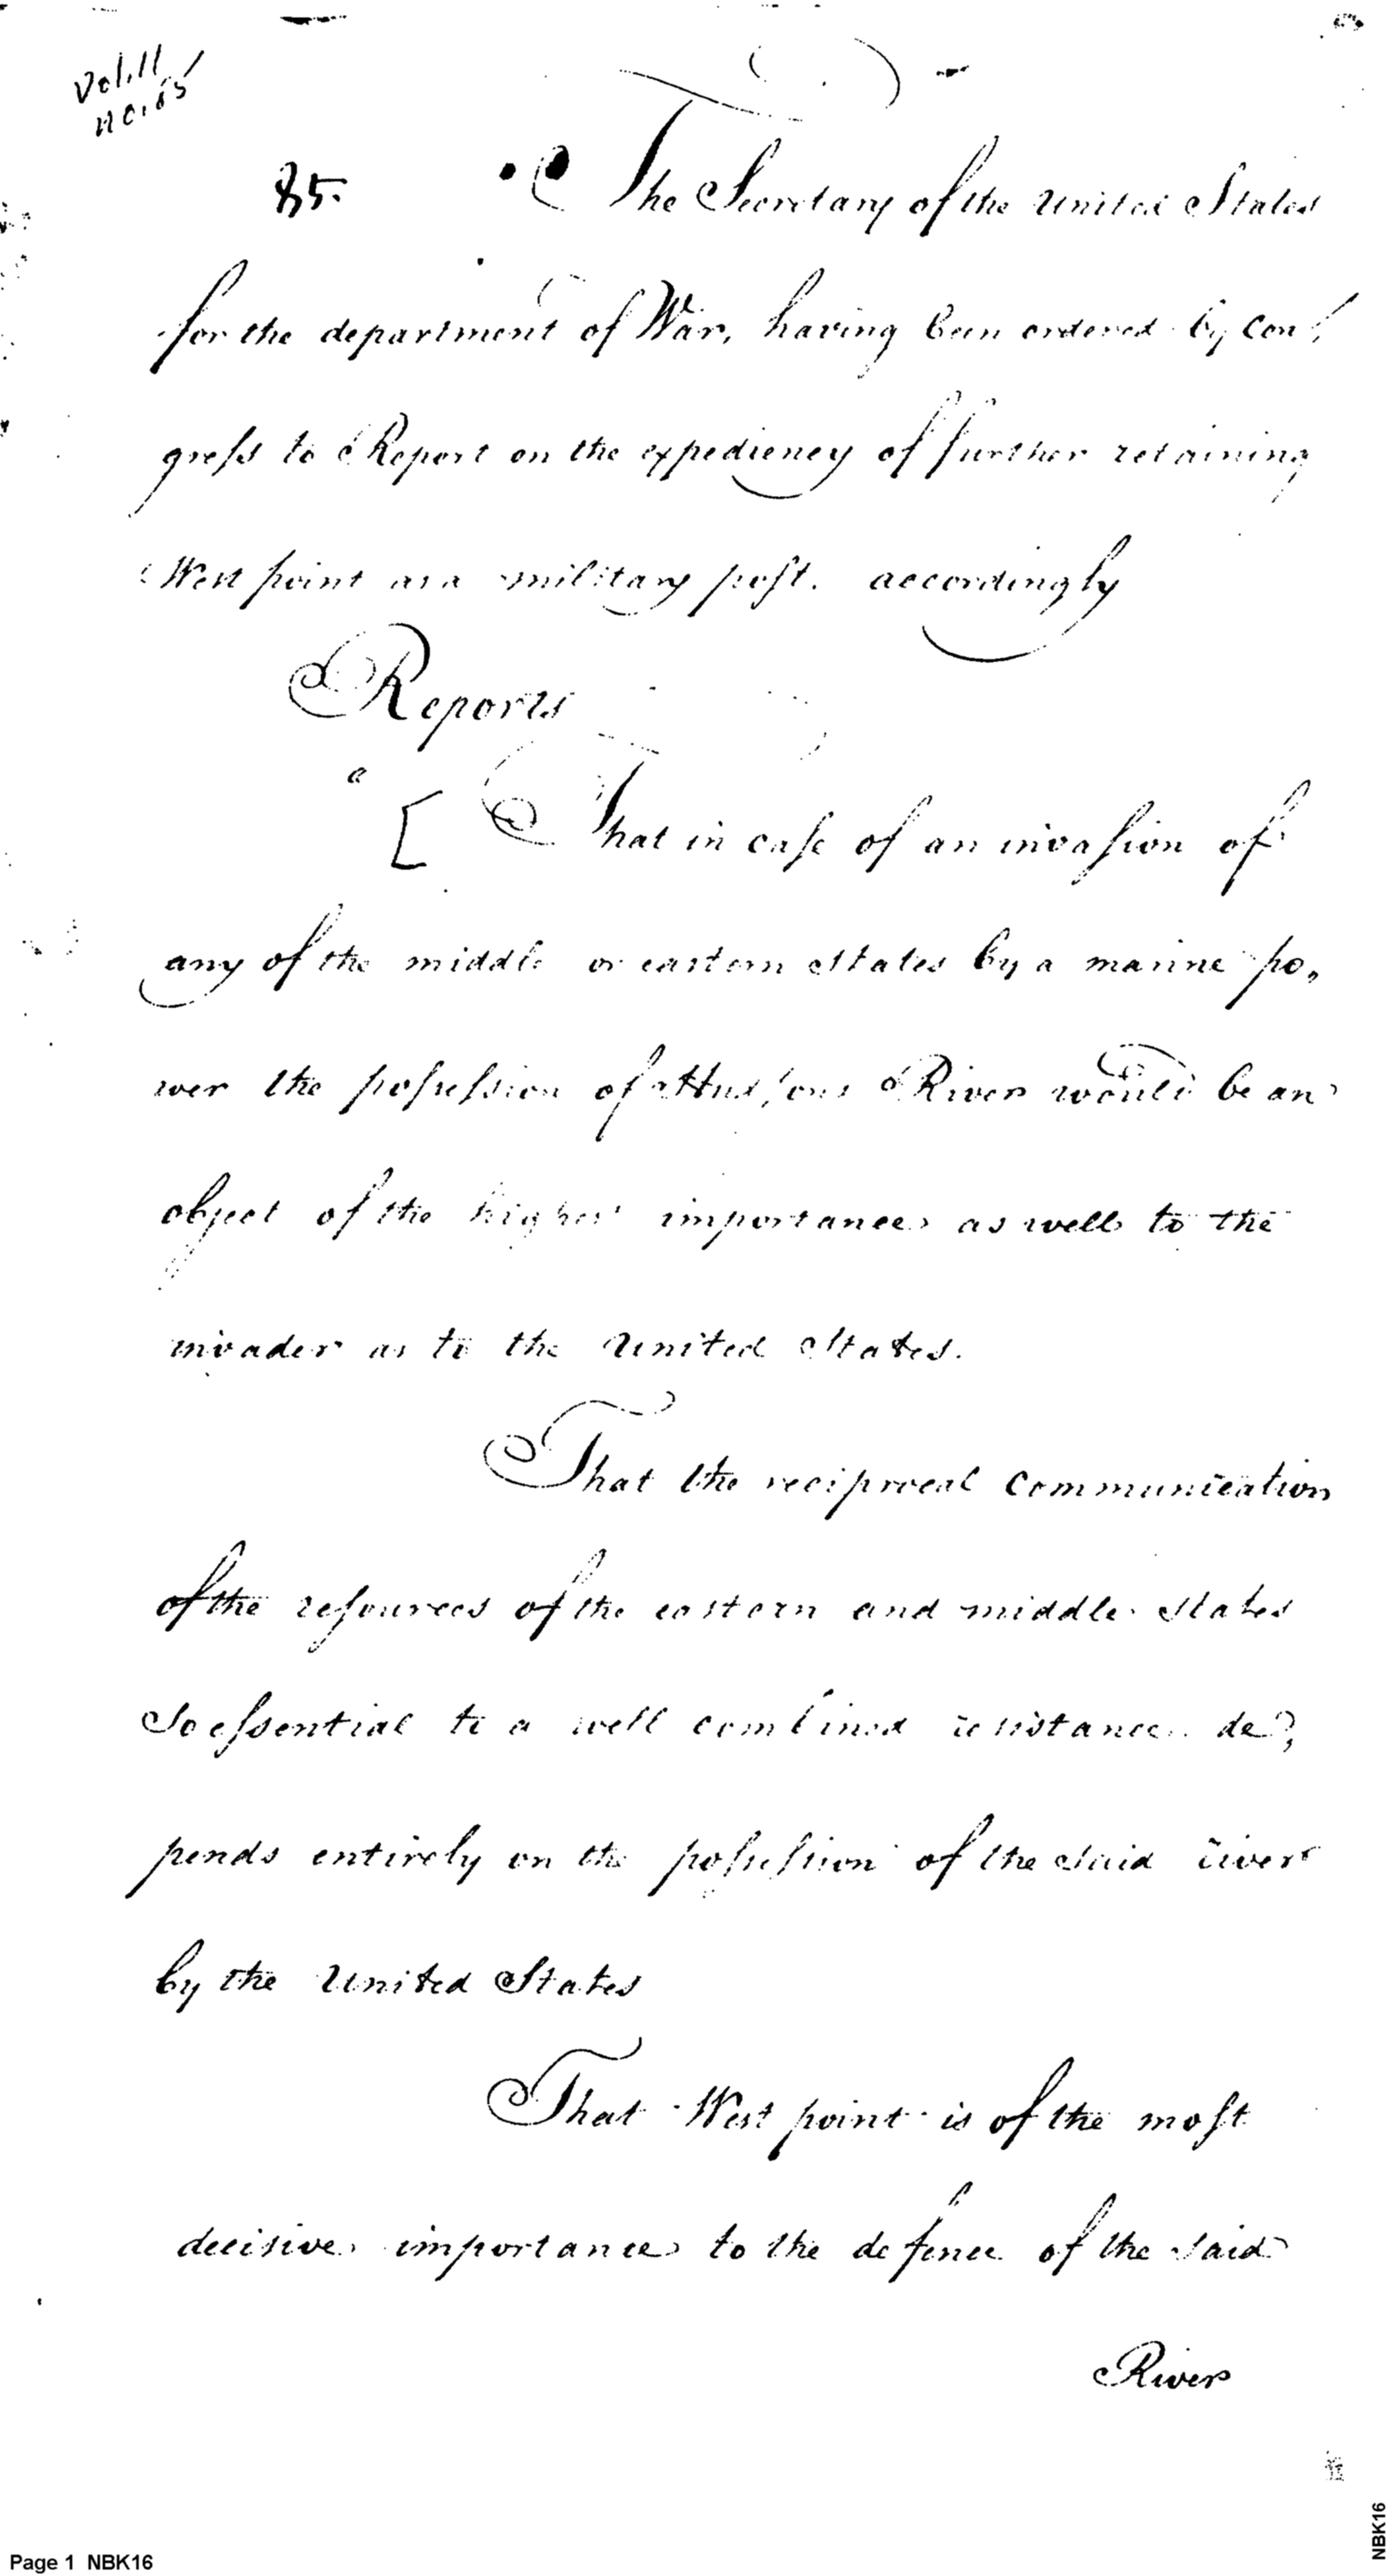 Vol. 11
no. 85
85.
The Secretary of the United States
for the department of War, having been ordered by Con
gress to Report on the expediency of further retaining
West point as a military post. accordingly
Reports
a
[ That in case of an invasion of
any of the middle or eastern States by a marine po,
wer the possession of Hudsons River would be an
object of the highest importance as well to the
invader as to the United States.
That the reciprocal Communication
of the resources of the eastern and middle States
So essential to a well combined resistance de,
pends entirely on the possession of the said river
by the United States
That West point is of the most
decisive importance to the defence of the said
River
Page 1 NBK16
NBK16